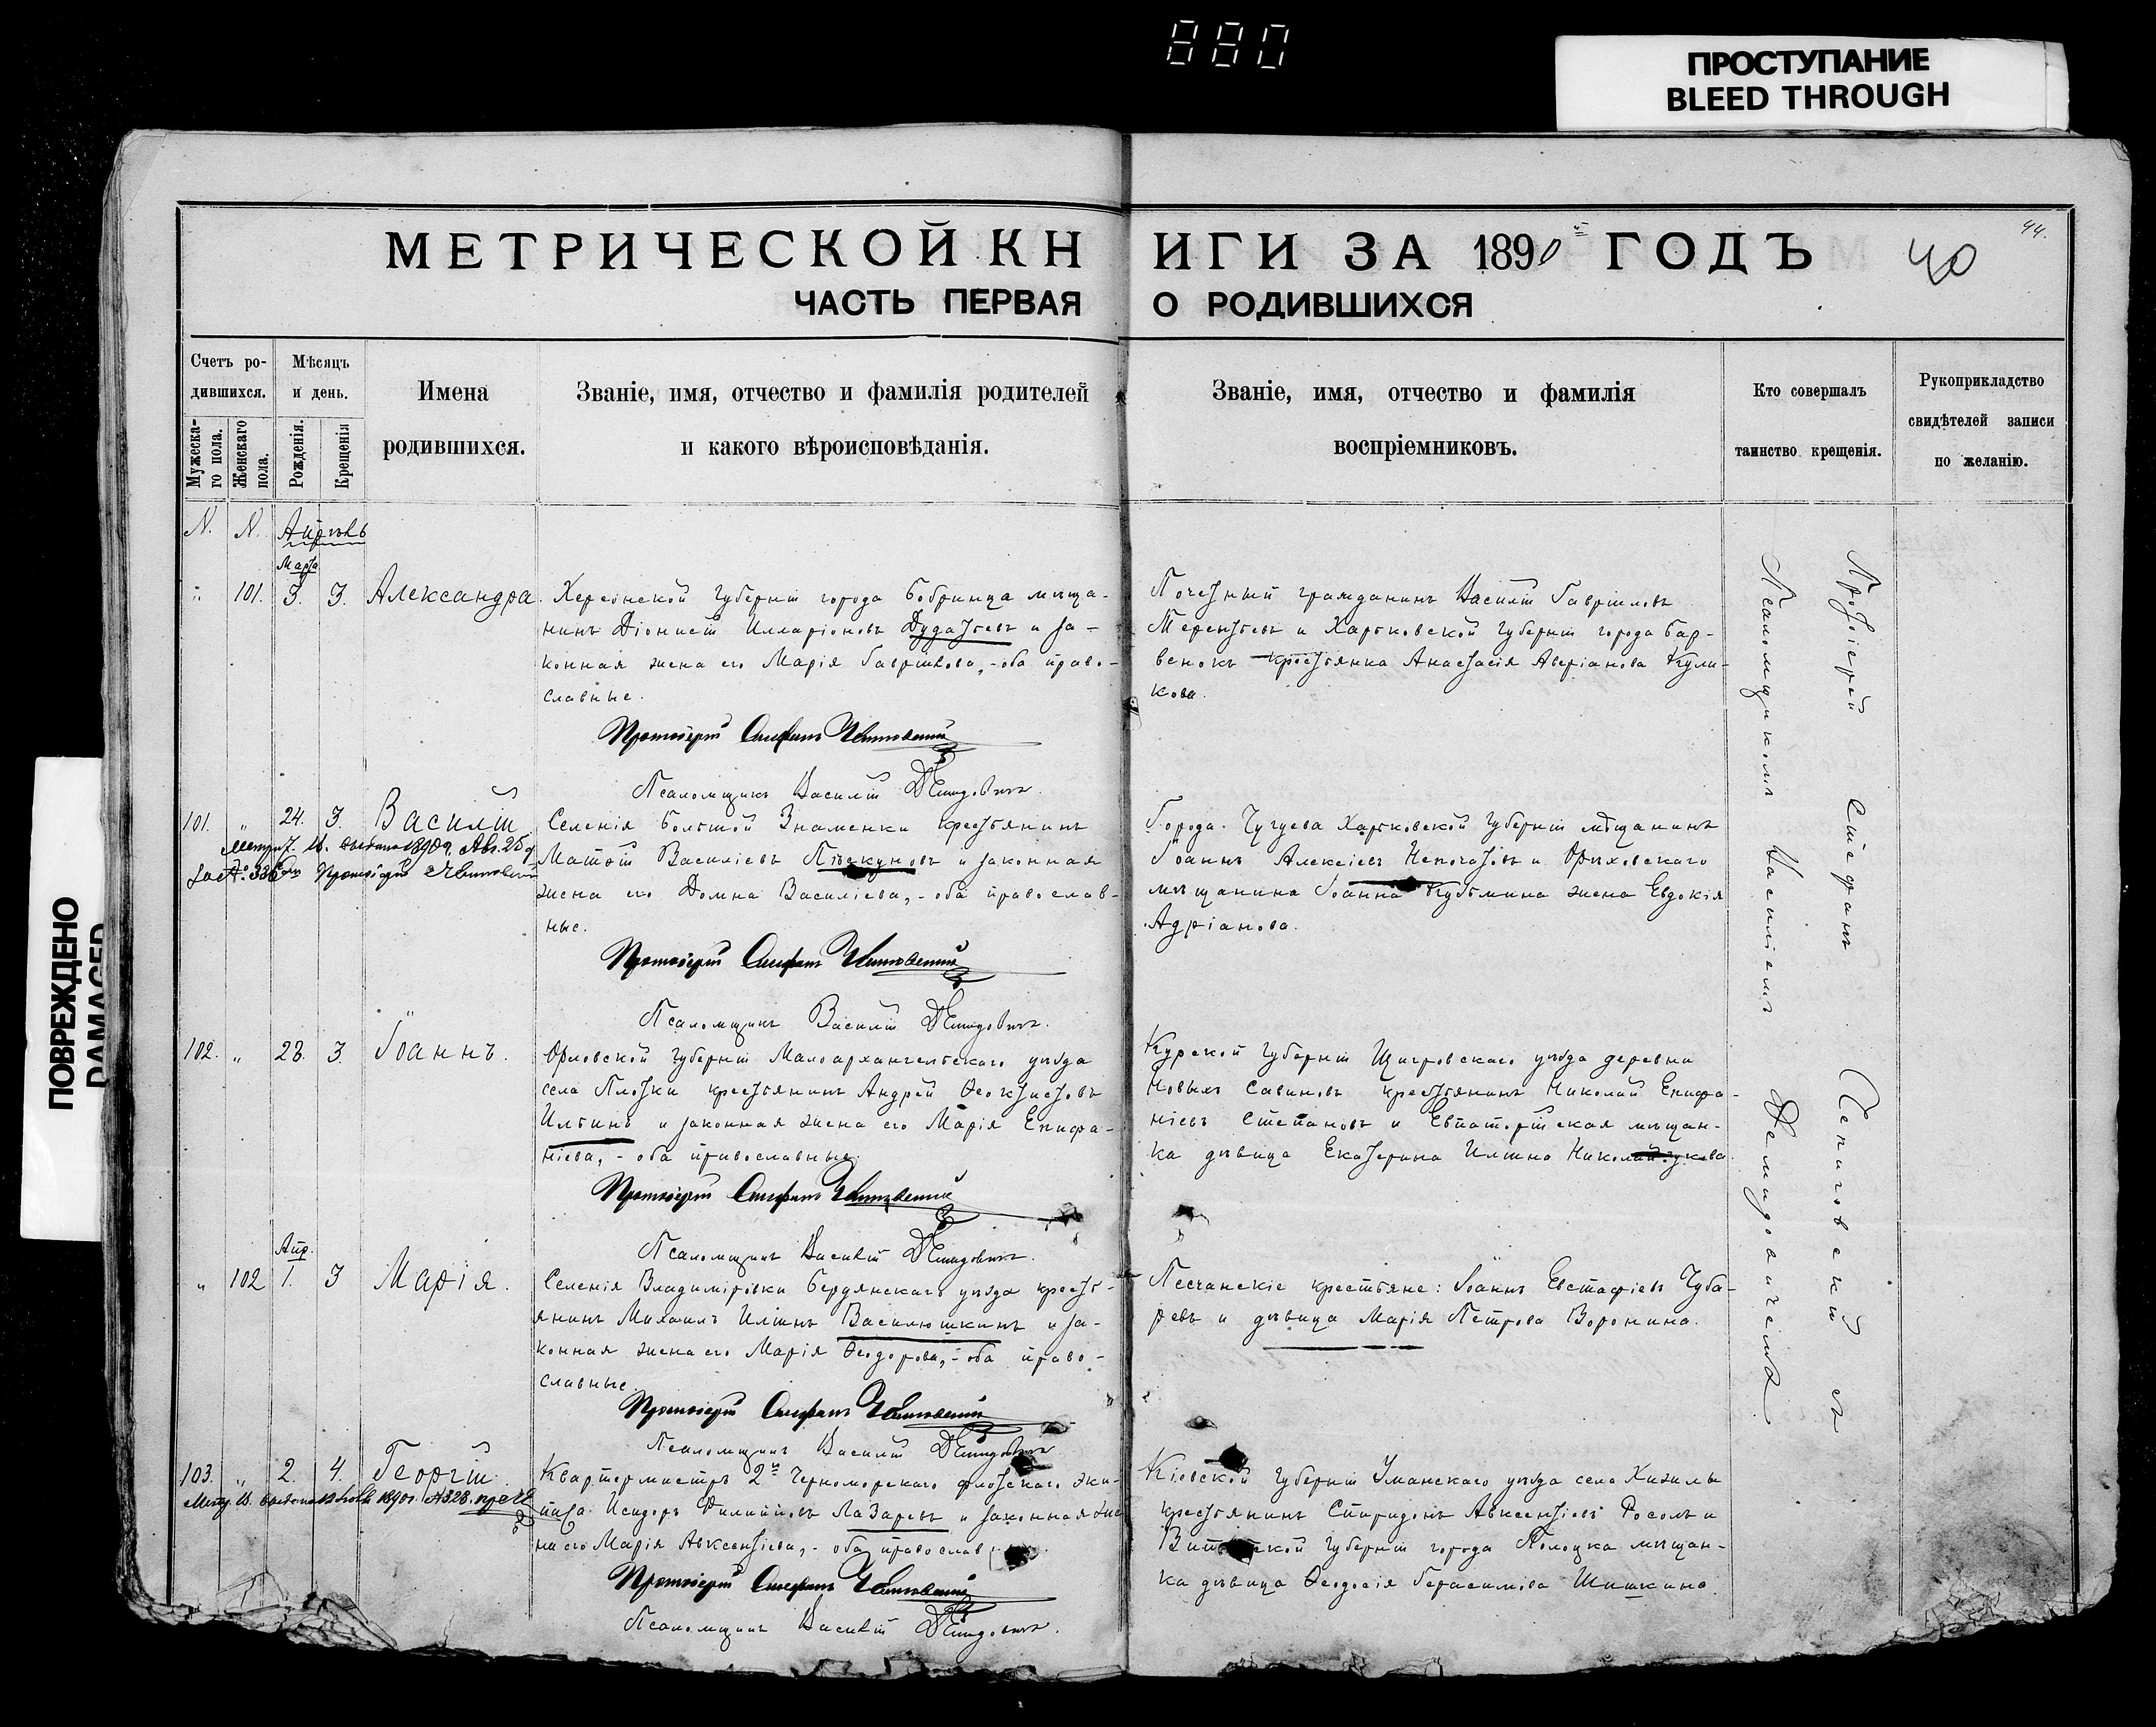 880
ПРОСТУПАНИЕ
BLEED THROUGH
ПОВРЕЖДЕНО
DAMAGED
МЕТРИЧЕСКОЙ КНИГИ ЗА 1890й ГОДЪ
40
44.
ЧАСТЬ ПЕРВАЯ О РОДИВШИХСЯ
Счетъ ро-
дившихся.
Мужеска-
го пола.
Женскаго
пола.
Мѣсяцъ
и день.
Рожденія.
Крещенія
Имена
родившихся.
Званіе, имя, отчество и фамилія родителей
и какого вѣроисповѣданія.
Званіе, имя, отчество и фамилія
воспріемниковъ.
Кто совершалъ
таинство крещенія.
Рукоприкладство
свидѣтелей записи
по желанію.
N. N. Апрѣль
Марта
" 101. 3. 3. Александра.
Херсонской губерніи города Бобринца мѣща-
нинъ Діонисій Илларіоновъ Дудатьевъ и за-
конная жена его Марія Гавріилова, - оба право-
славные.
Протоіерей Стефанъ
Псаломщикъ Василій Демидовичъ.
Почетный гражданинъ Василій Гавріиловъ
Терентьевъ и Харьковской губерніи города Бар-
венокъ крестьянка Анастасія Аверіанова Кули-
кова.
101. " 24. 3. Василій
Селенія Большой Знаменки крестьянинъ
Матѳій Василіевъ Пѣскуновъ и законная
жена его Домна Василіева, - оба православ-
ные.
Протоіерей Стефанъ
Псаломщикъ Василій Демидовичъ.
Города Чугуева Харьковской губерніи мѣщанинъ
Іоаннъ Алексіевъ Непочатовъ и Орѣховскаго
мѣщанина Іоанна Кузьмина жена Евдокія
Адріанова.
102. " 23. 3. Іоаннъ.
Орловской губерніи Малоархангельскаго уѣзда
села Плотки крестьянинъ Андрей Ѳеоктистовъ
Ильинъ и законная жена его Марія Епифа-
ніева, - оба православные.
Протоіерей Стефанъ
Псаломщикъ Василій Демидовичъ.
Курской губерніи Щигровскаго уѣзда деревни
Новыхъ Савиновъ крестьянинъ Николай Епифа-
ніевъ Степановъ и Евпаторійская мѣщан-
ка дѣвица Екатерина Ильина
Апр.
" 102 1. 3 Марія.
Селенія Владиміровки Бердянскаго уѣзда кресть-
янинъ Михаилъ Ильинъ Василюшкинъ и за-
конная жена его Марія Ѳеодорова, - оба право-
славные.
Протоіерей Стефанъ
Псаломщикъ Василій Демидовичъ
Песчанскіе крестьяне: Іоаннъ Евстафіевъ Чуба-
ревъ и дѣвица Марія Петрова Воронина.
103. " 2. 4. Георгій
Квартермистръ 2го Черноморскаго флотскаго эки-
пажа Исидоръ Филипповъ Лазаревъ и законная же-
на его Марія Авксентіева, - оба православ
Протоіерей Стефанъ
Псаломщикъ Василій Демидовичъ.
Кіевской губерніи Уманскаго уѣзда села
крестьянинъ Спиридонъ Авксентіевъ Росолъ и
губерніи города Полоцка мѣщан-
ка дѣвица Ѳеодосія Герасимова Шишкина.
Протоіерей Стефанъ съ
Псаломщикомъ Василіемъ Демидовичемъ